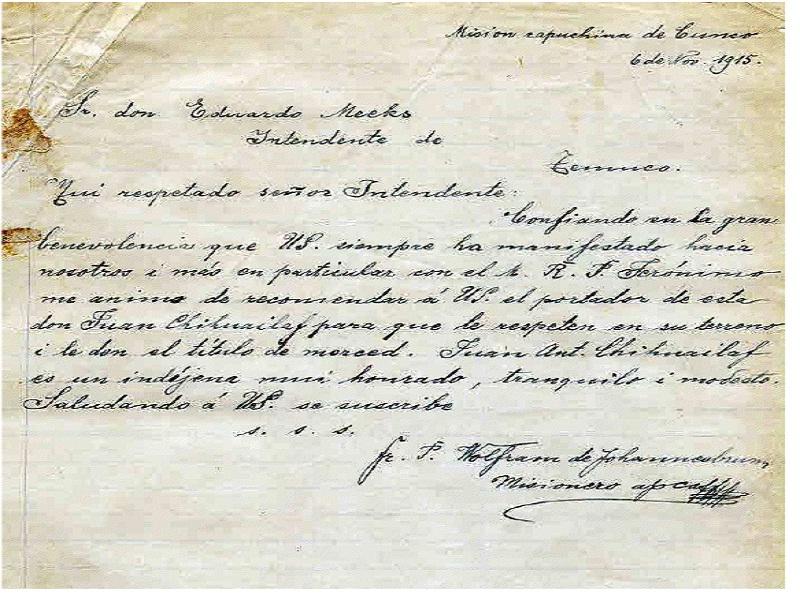 Mision capuchina de Cunco
6 de Nov. 1915.
Sr. don Eduardo Meeks
Intendente de
Temuco.
Mui respetado señor Intendente:
Confiando en la gran
benevolencia que US. siempre ha manifestado hacia
nosotros i más en particular con el M. R. P. Jerónimo
me animo de recomendar á US. el portador de esta
don Juan Chihuailaf para que le respeten en su terreno
i le den el título de merced. Juan Ant. Chihuailaf
es un indéjena mui honrado, tranquilo i modesto.
Saludando á US. se suscribe
s. s. s.
fr. P. Wolfram de Johannesbrunn
Misionero apca